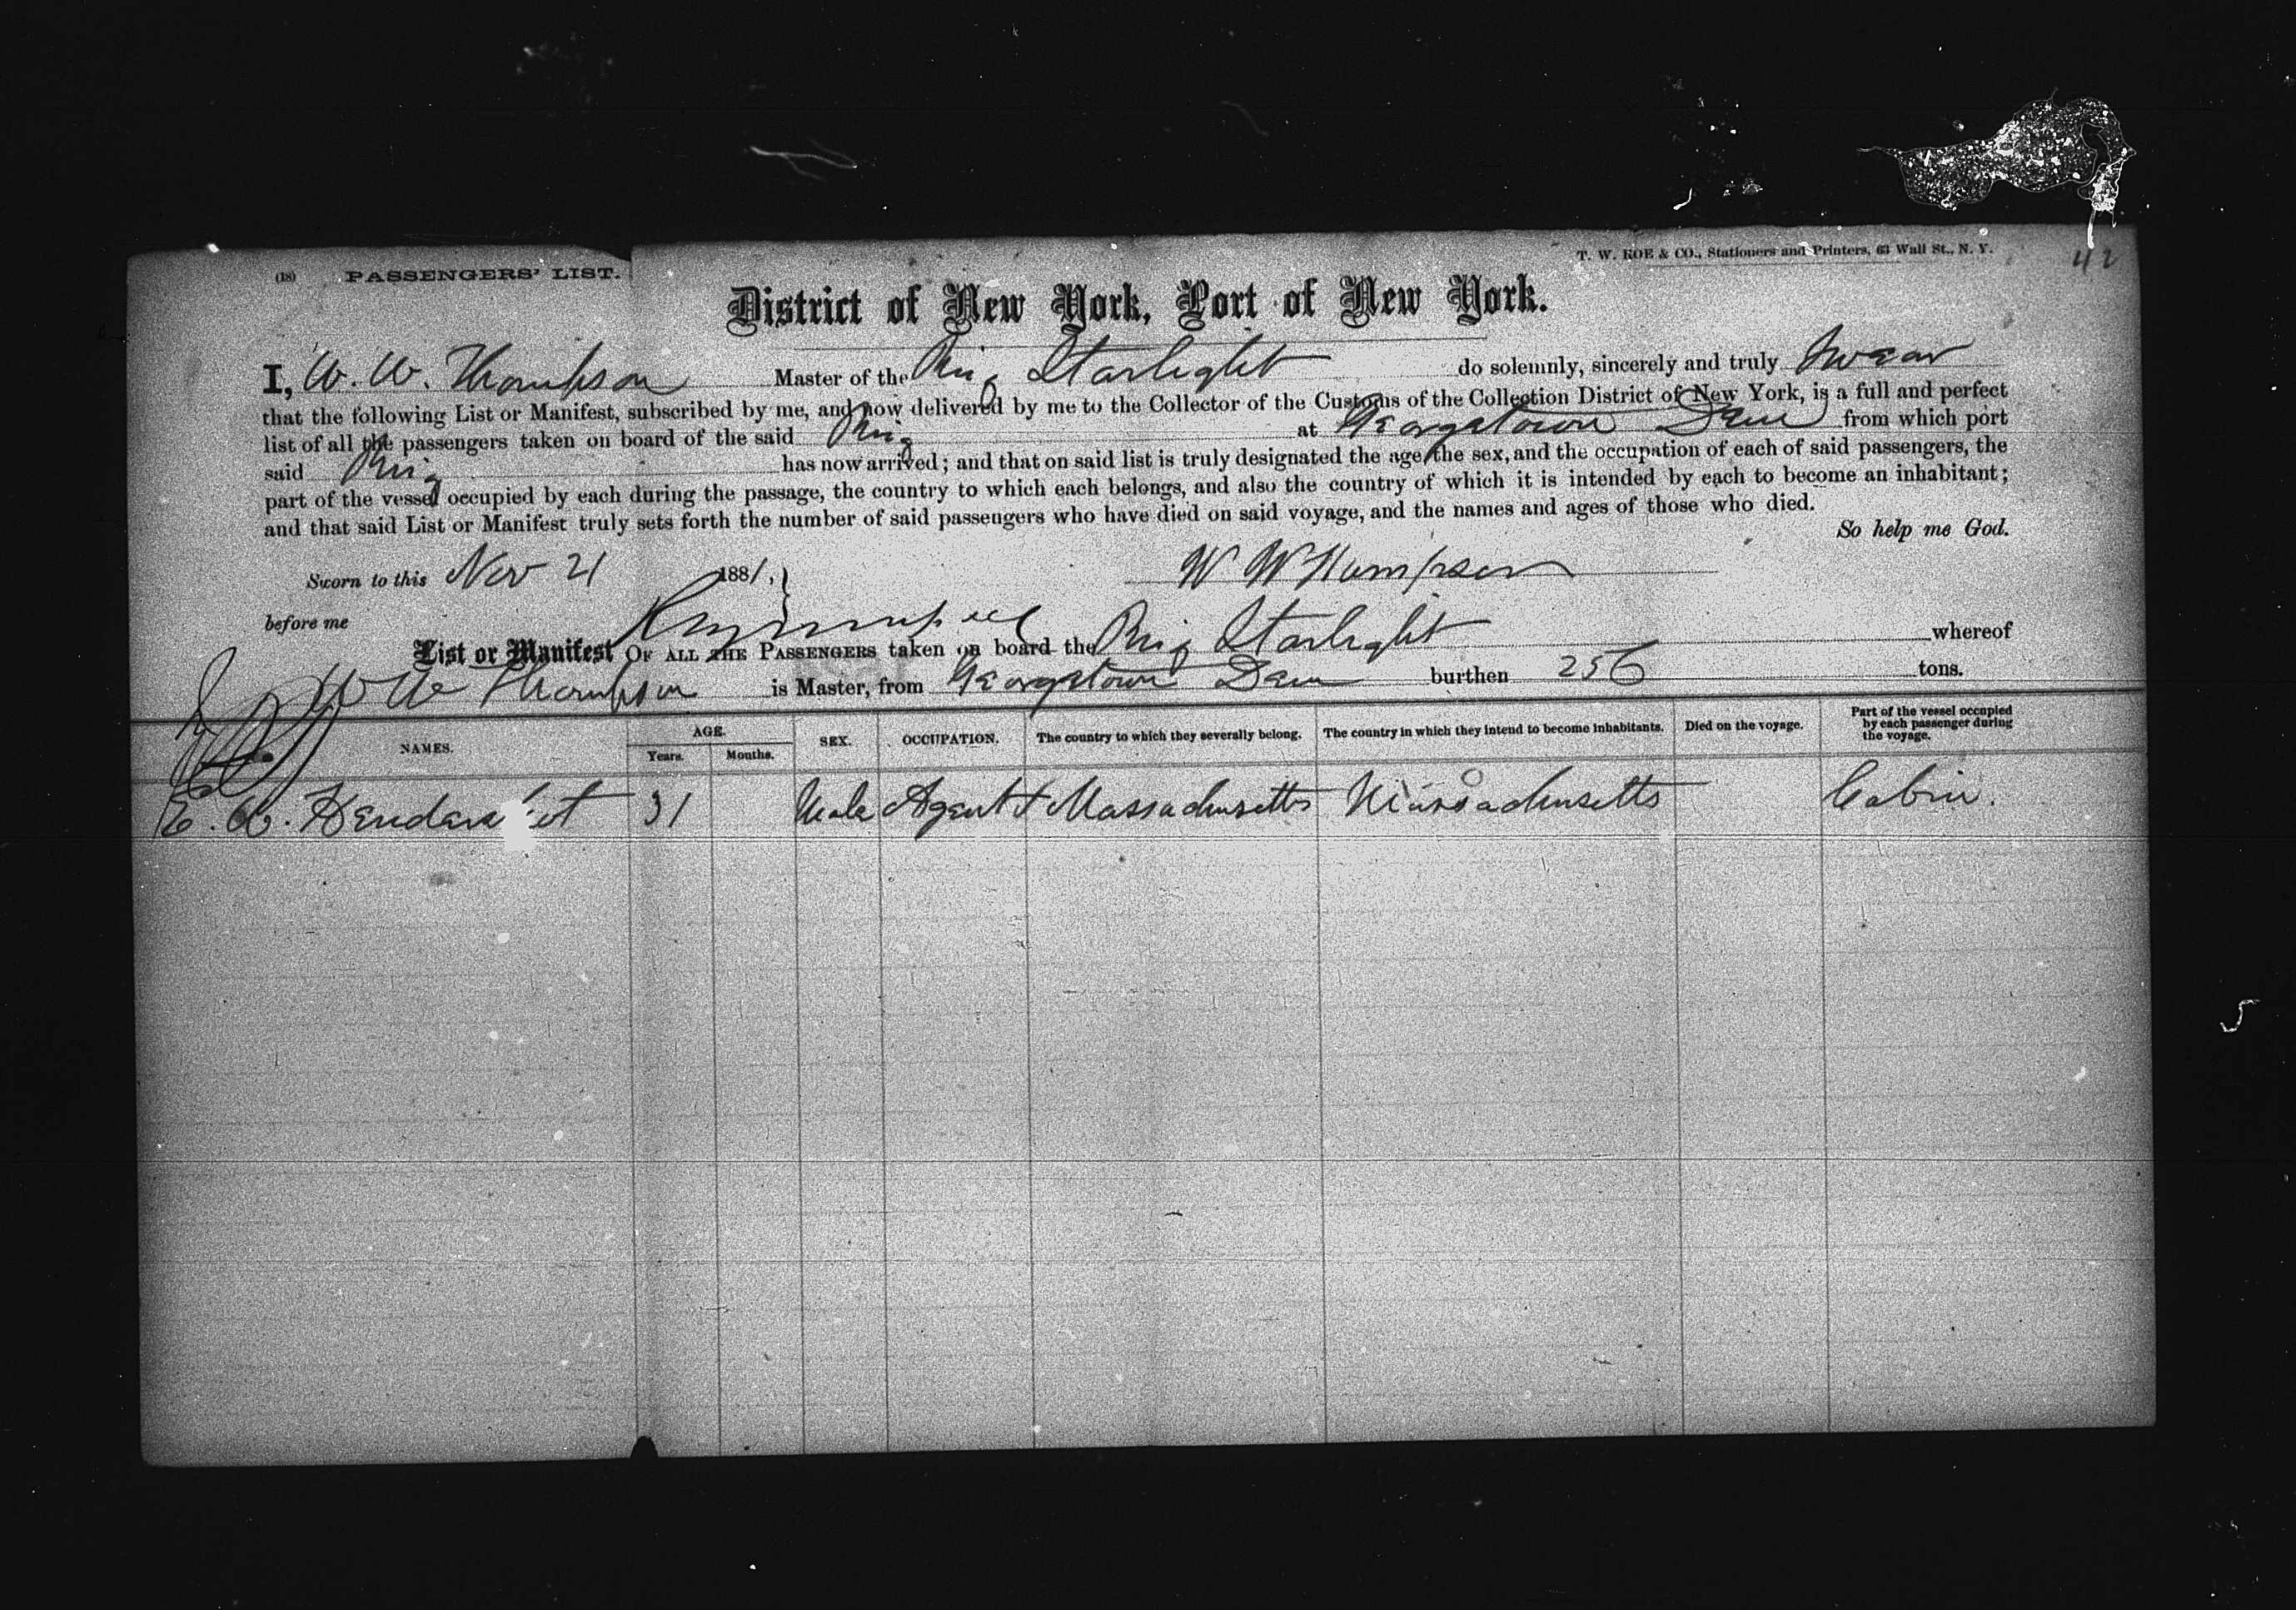 T. W. ROE & CO., Stationers and Printers, 63 Wall St., N. Y.
42
(18) PASSENGERS' LIST.
District of New York, Port of New York.
I, W. W. Thompson Master of the Brig Starlight do solemnly, sincerely and truly Swear
that the following List or Manifest, subscribed by me, and now delivered by me to the Collector of the Customs of the Collection District of New York, is a full and perfect
list of all the passengers taken on board of the said Brig at Georgetown Dem from which port
said Brig has now arrived; and that on said list is truly designated the age, the sex, and the occupation of each of said passengers, the
part of the vessel occupied by each during the passage, the country to which each belongs, and also the country of which it is intended by each to become an inhabitant;
and that said List or Manifest truly sets forth the number of said passengers who have died on said voyage, and the names and ages of those who died.
So help me God.
Sworn to this Nov 21 1881, W W Thompson
before me
List or Manifest OF ALL THE PASSENGERS taken on board the Brig Starlight whereof
W W Thompson is Master, from Georgetown Dem burthen 256 tons.
NAMES. AGE. Years. Months. SEX. OCCUPATION. The country to which they severally belong. The country in which they intend to become inhabitants. Died on the voyage. Part of the vessel occupied by each passenger during the voyage.
E. W. 31 Male Agent Massachusetts Massachusetts Cabin.